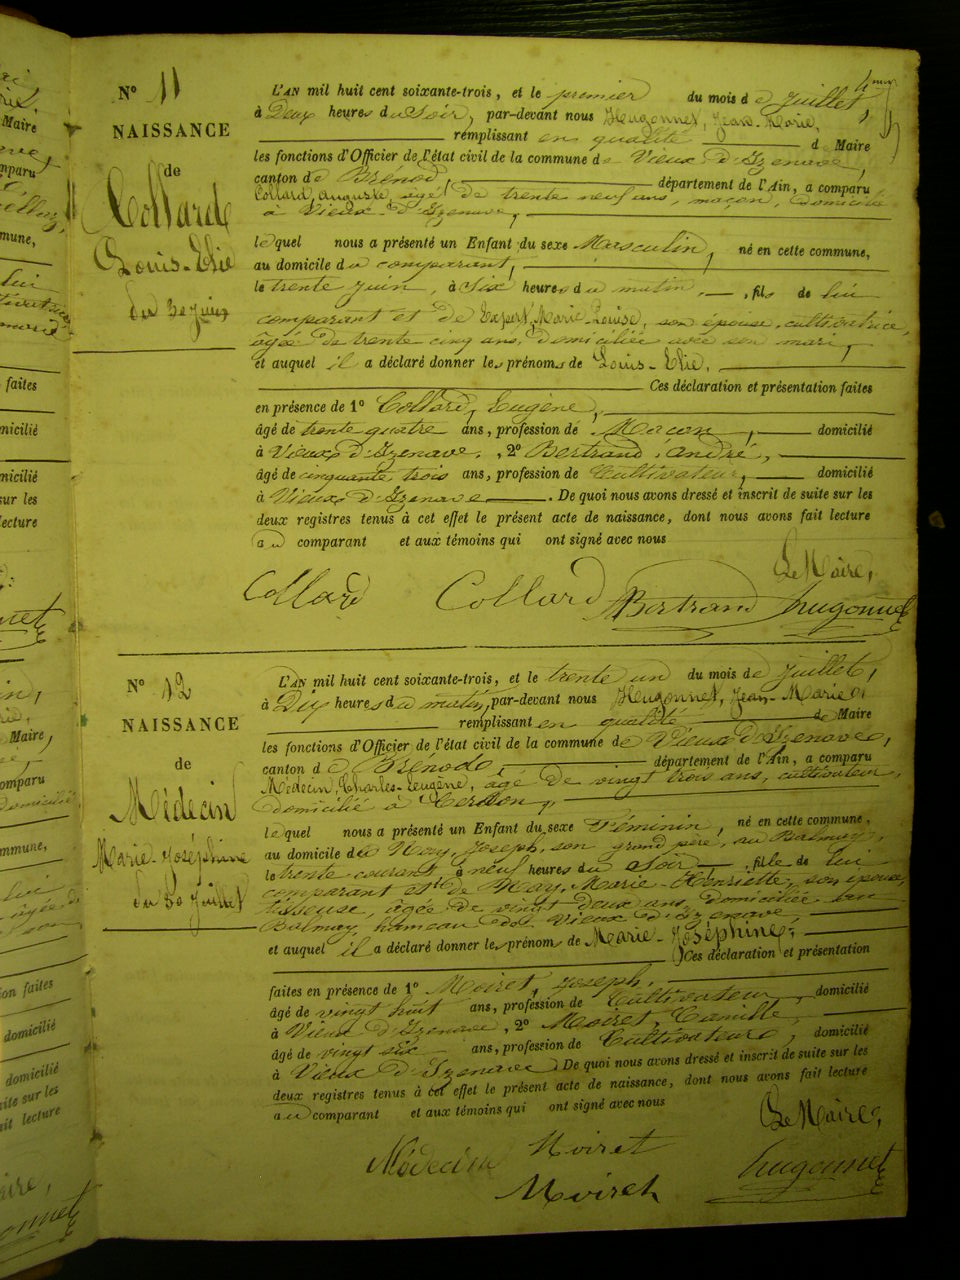 N° 11
NAISSANCE
de
Collard
Louis-Elie
du 30 Juin
L'AN mil huit cent soixante-trois, et le premier du mois de Juillet,
à Deux heures du Soir, par-devant nous Hugonnet, Jean-Marie,
remplissant en qualité de Maire
les fonctions d'Officier de l'état civil de la commune de Vieux d'Izenave,
canton de Brenod, département de l'Ain, a comparu
Collard, Auguste, âgé de trente neuf ans, maçon, domicilié
à Vieux-d'Izenave,
lequel nous a présenté un Enfant du sexe Masculin, né en cette commune,
au domicile du comparant,
le trente Juin, à Six heures du matin, fils de lui
comparant et de Expert, Marie-Louise, son épouse, cultivatrice,
agée de trente cinq ans, domiciliée avec son mari,
et auquel il a déclaré donner les prénoms de Louis-Elie.
Ces déclaration et présentation faites
en présence de 1° Collard, Eugène,
âgé de trente quatre ans, profession de Macon, domicilié
à Vieux d'Izenave, 2° Bertrand André,
âgé de cinquante trois ans, profession de Cultivateur, domicilié
à Vieux d'Izenave. De quoi nous avons dressé et inscrit de suite sur les
deux registres tenus à cet effet le présent acte de naissance, dont nous avons fait lecture
au comparant et aux témoins qui ont signé avec nous
Le Maire,
Collard Collard Bertrand hugonnet
N° 12
NAISSANCE
de
Médecin
Marie-Joséphine
du 30 Juillet
L'AN mil huit cent soixante-trois, et le trente un du mois de Juillet,
à Dix heures du matin, par-devant nous Hugonnet, Jean-Marie
remplissant en qualité de Maire
les fonctions d'Officier de l'état civil de la commune de Vieux d'Izenave,
canton de Brenod, département de l'Ain, a comparu
Médecin, Charles-Eugène, agé de vingt trois ans, cultivateur,
domicilié à Cerdon,
lequel nous a présenté un Enfant du sexe Féminin, né en cette commune,
au domicile de Nay, Joseph, son grand père, au Balmay,
le trente courant, à neuf heures du Soir, fille de lui
comparant et de Nay, Marie-Henriette, son épouse,
tisseuse, agée de vingt deux ans, domiciliée au
Balmay, hameau de Vieux d'Izenave,
et auquel il a déclaré donner les prénom de Marie-Joséphine;
Ces déclaration et présentation
faites en présence de 1° Moiret, Joseph,
âgé de vingt huit ans, profession de Cultivateur, domicilié
à Vieux d'Izenave, 2° Moiret, Camille,
âgé de vingt six ans, profession de Cultivateur, domicilié
à Vieux d'Izenave De quoi nous avons dressé et inscrit de suite sur les
deux registres tenus à cet effet le présent acte de naissance, dont nous avons fait lecture
au comparant et aux témoins qui ont signé avec nous
Le Maire,
Médecin Moiret hugonnet
Moiret